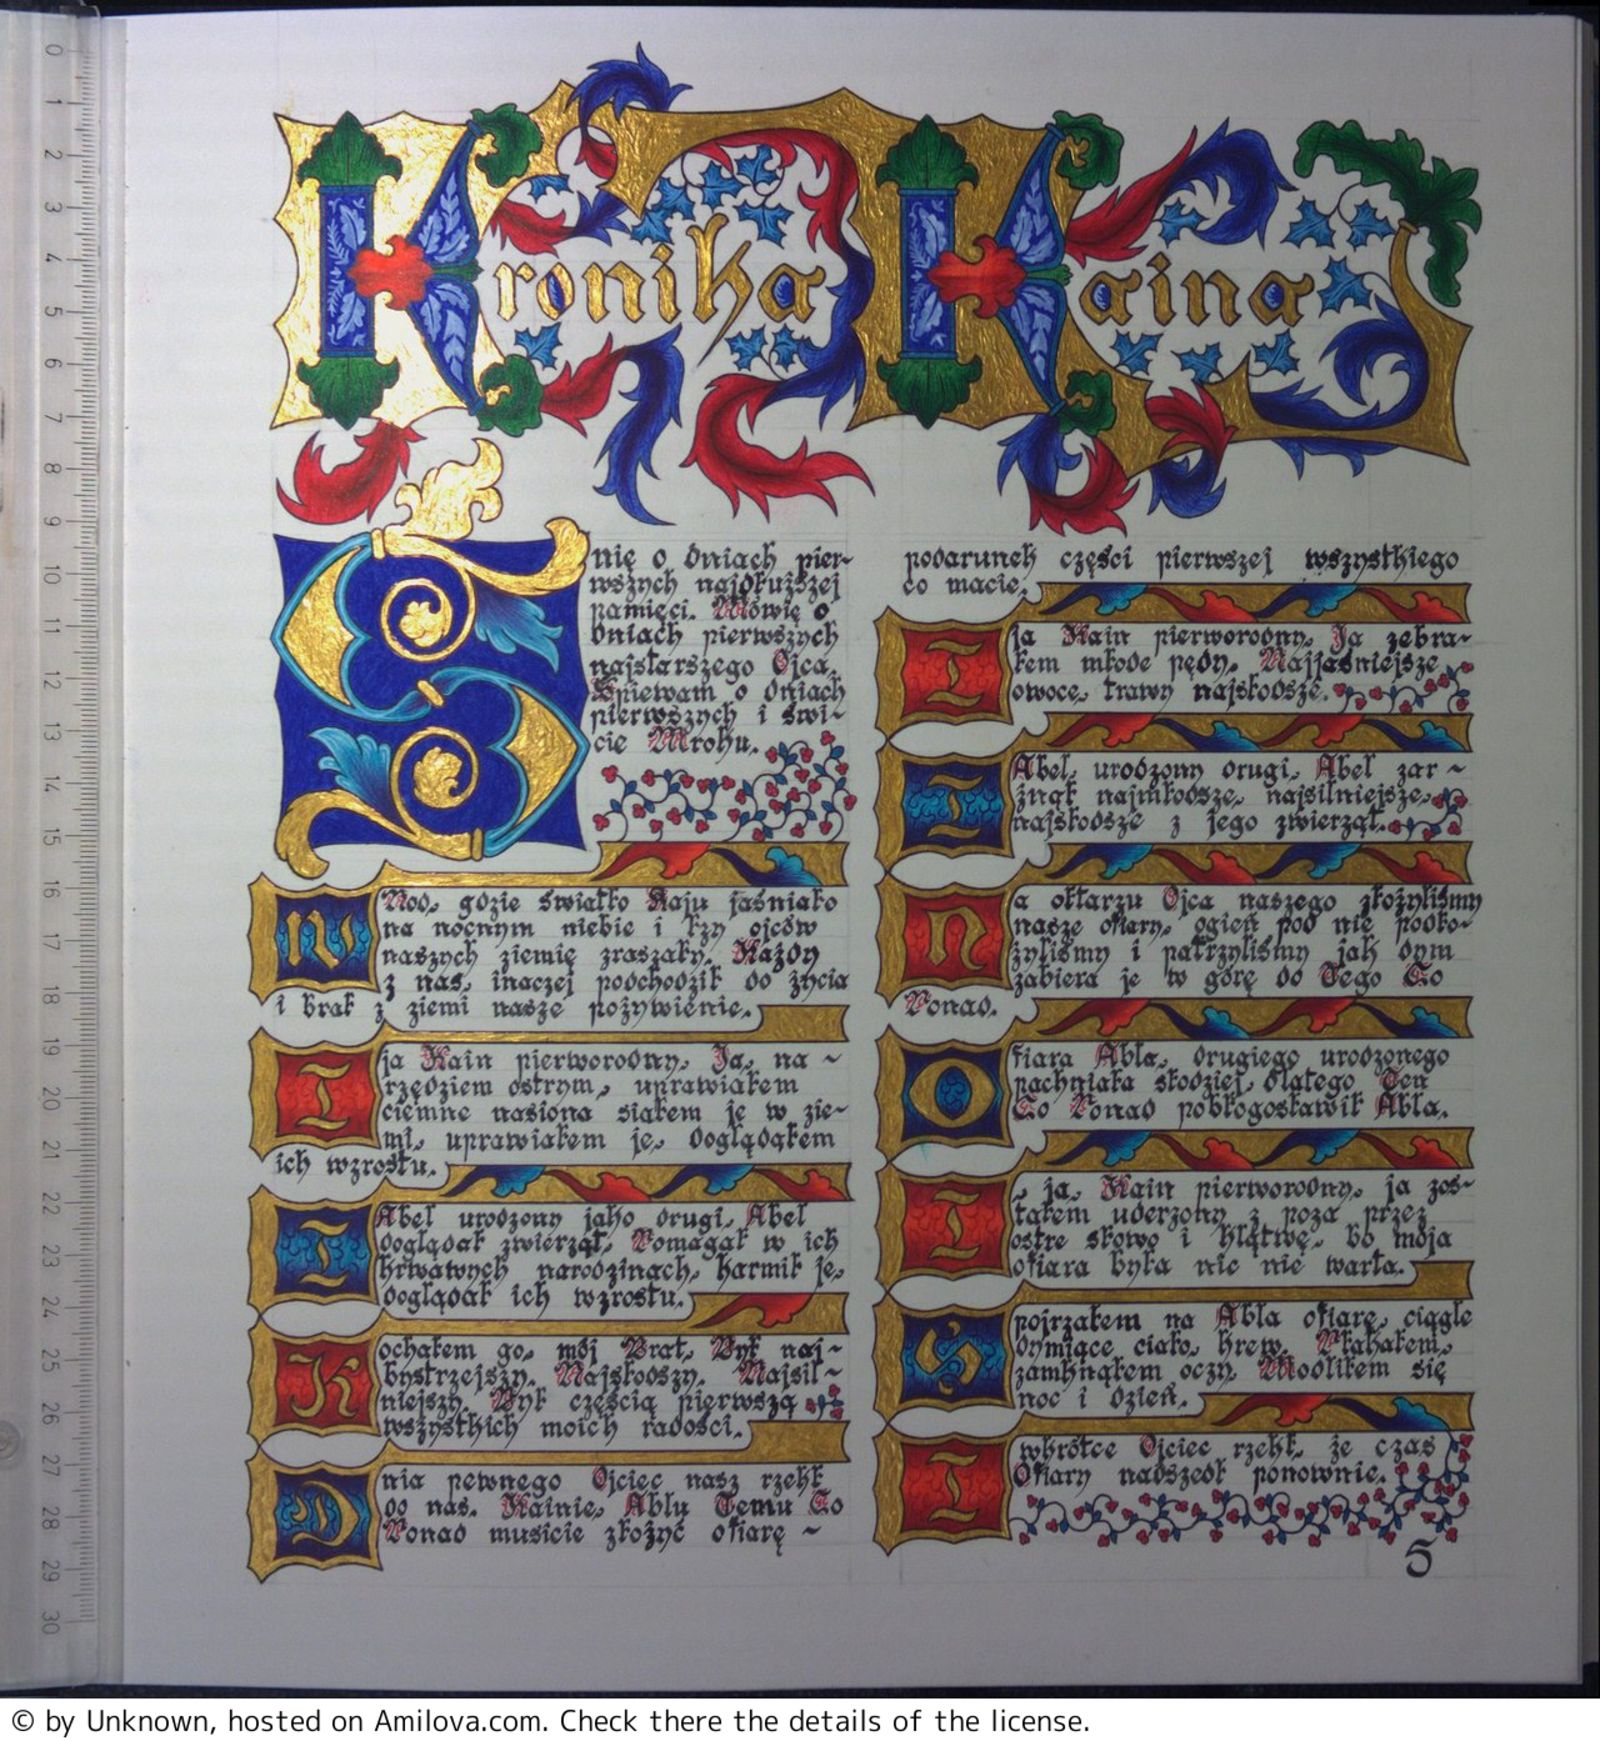 Kronika Kaina
Śnię o dniach pier~
wszych najdłuższej
pamięci. Mówię o
dniach pierwszych
najstarszego Ojca.
Śpiewam o dniach
pierwszych i świ~
cie Mroku.
W Nod, gdzie światło Raju jaśniało
na nocnym niebie i łzy ojców
naszych ziemię zraszały. Każdy
z nas, inaczej podchodził do życia
i brał z ziemi nasze pożywienie.
I ja Kain pierworodny, Ja, na ~
rzędziem ostrym, uprawiałem
ciemne nasiona siałem je w zie~
mi, uprawiałem je, doglądałem
ich wzrostu.
I Abel urodzony jako drugi, Abel
doglądał zwierząt, Pomagał w ich
krwawych narodzinach, karmił je,
doglądał ich wzrostu.
Kochałem go, mój Brat, Był naj~
bystrzejszy. Najsłodszy. Najsil~
niejszy. Był częścią pierwszą
wszystkich moich radości.
Dnia pewnego Ojciec nasz rzekł
do nas. Kainie, Ablu Temu Co
Ponad musicie złożyć ofiarę ~
podarunek części pierwszej wszystkiego
co macie.
I ja Kain pierworodny, Ja zebra~
łem młode pędy, Najjaśniejsze
owoce, trawy najsłodsze.
I Abel, urodzony drugi, Abel zar ~
żnął najmłodsze, najsilniejsze,
najsłodsze z jego zwierząt.
Na ołtarzu Ojca naszego złożyliśmy
nasze ofiary, ogień pod nie podło~
żyliśmy i patrzyliśmy jak dym
zabiera je w górę do Tego Co
Ponad.
Ofiara Abla, drugiego urodzonego
pachniała słodziej, dlatego Ten
Co Ponad pobłogosławił Abla.
I, ja, Kain pierworodny, ja zos~
tałem uderzony z poza przez
ostre słowo i klątwę, bo moja
ofiara była nic nie warta.
Spojrzałem na Abla ofiarę, ciągle
dymiące ciało, krew. Płakałem,
zamknąłem oczy, Modliłem się
noc i dzień.
I wkrótce Ojciec rzekł, że czas
Ofiary nadszedł ponownie.
5
0
1
2
3
4
5
6
7
8
9
10
11
12
13
14
15
16
17
18
19
20
21
22
23
24
25
26
27
28
29
30
© by Unknown, hosted on Amilova.com. Check there the details of the license.